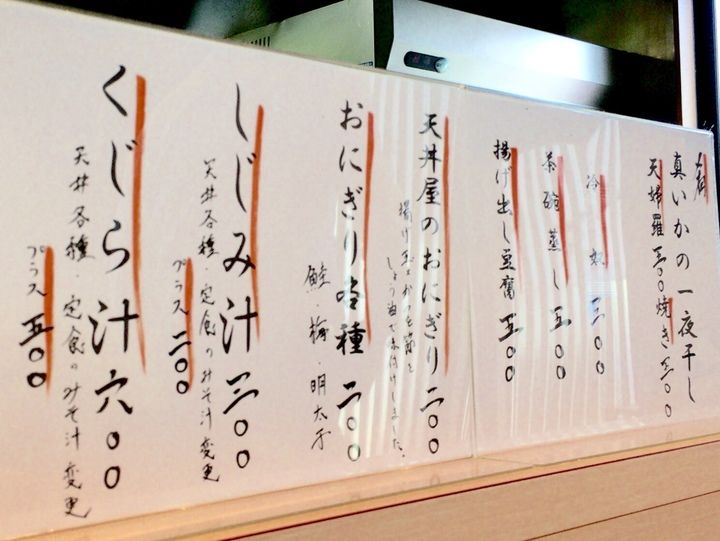 真いかの一夜干し
天婦羅 五〇〇 焼き 五〇〇
冷奴 三〇〇
茶碗蒸し 五〇〇
揚げ出し豆腐 五〇〇
天丼屋のおにぎり 二〇〇
揚げ玉とかつを節を
しょう油で味付けしました。
おにぎり各種 二〇〇
鮭・梅・明太子
しじみ汁 三〇〇
天丼各種・定食のみそ汁変更
プラス 二〇〇
くじら汁 六〇〇
天丼各種・定食のみそ汁変更
プラス 五〇〇